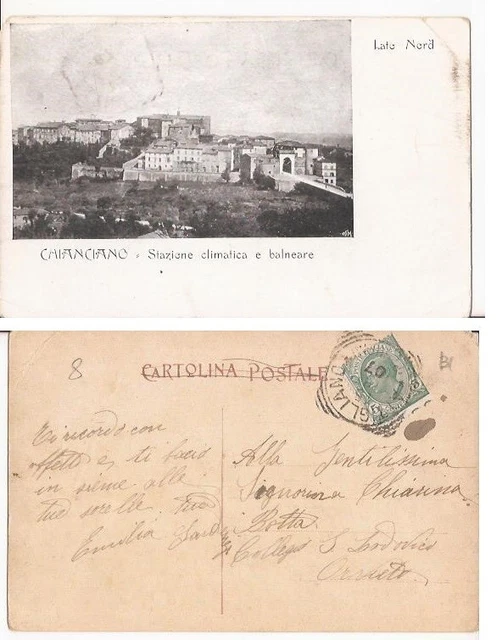 Lato Nord
CHIANCIANO - Stazione climatica e balneare
8
CARTOLINA POSTALE
GLIANO
07
Ti ricordo con
affetto e ti bacio
insieme alle
tue sorelle. Tua
Emilia
Alla Gentilissima
Signorina Chiarina
Botta
Collegio S. Lodovico
Orvieto